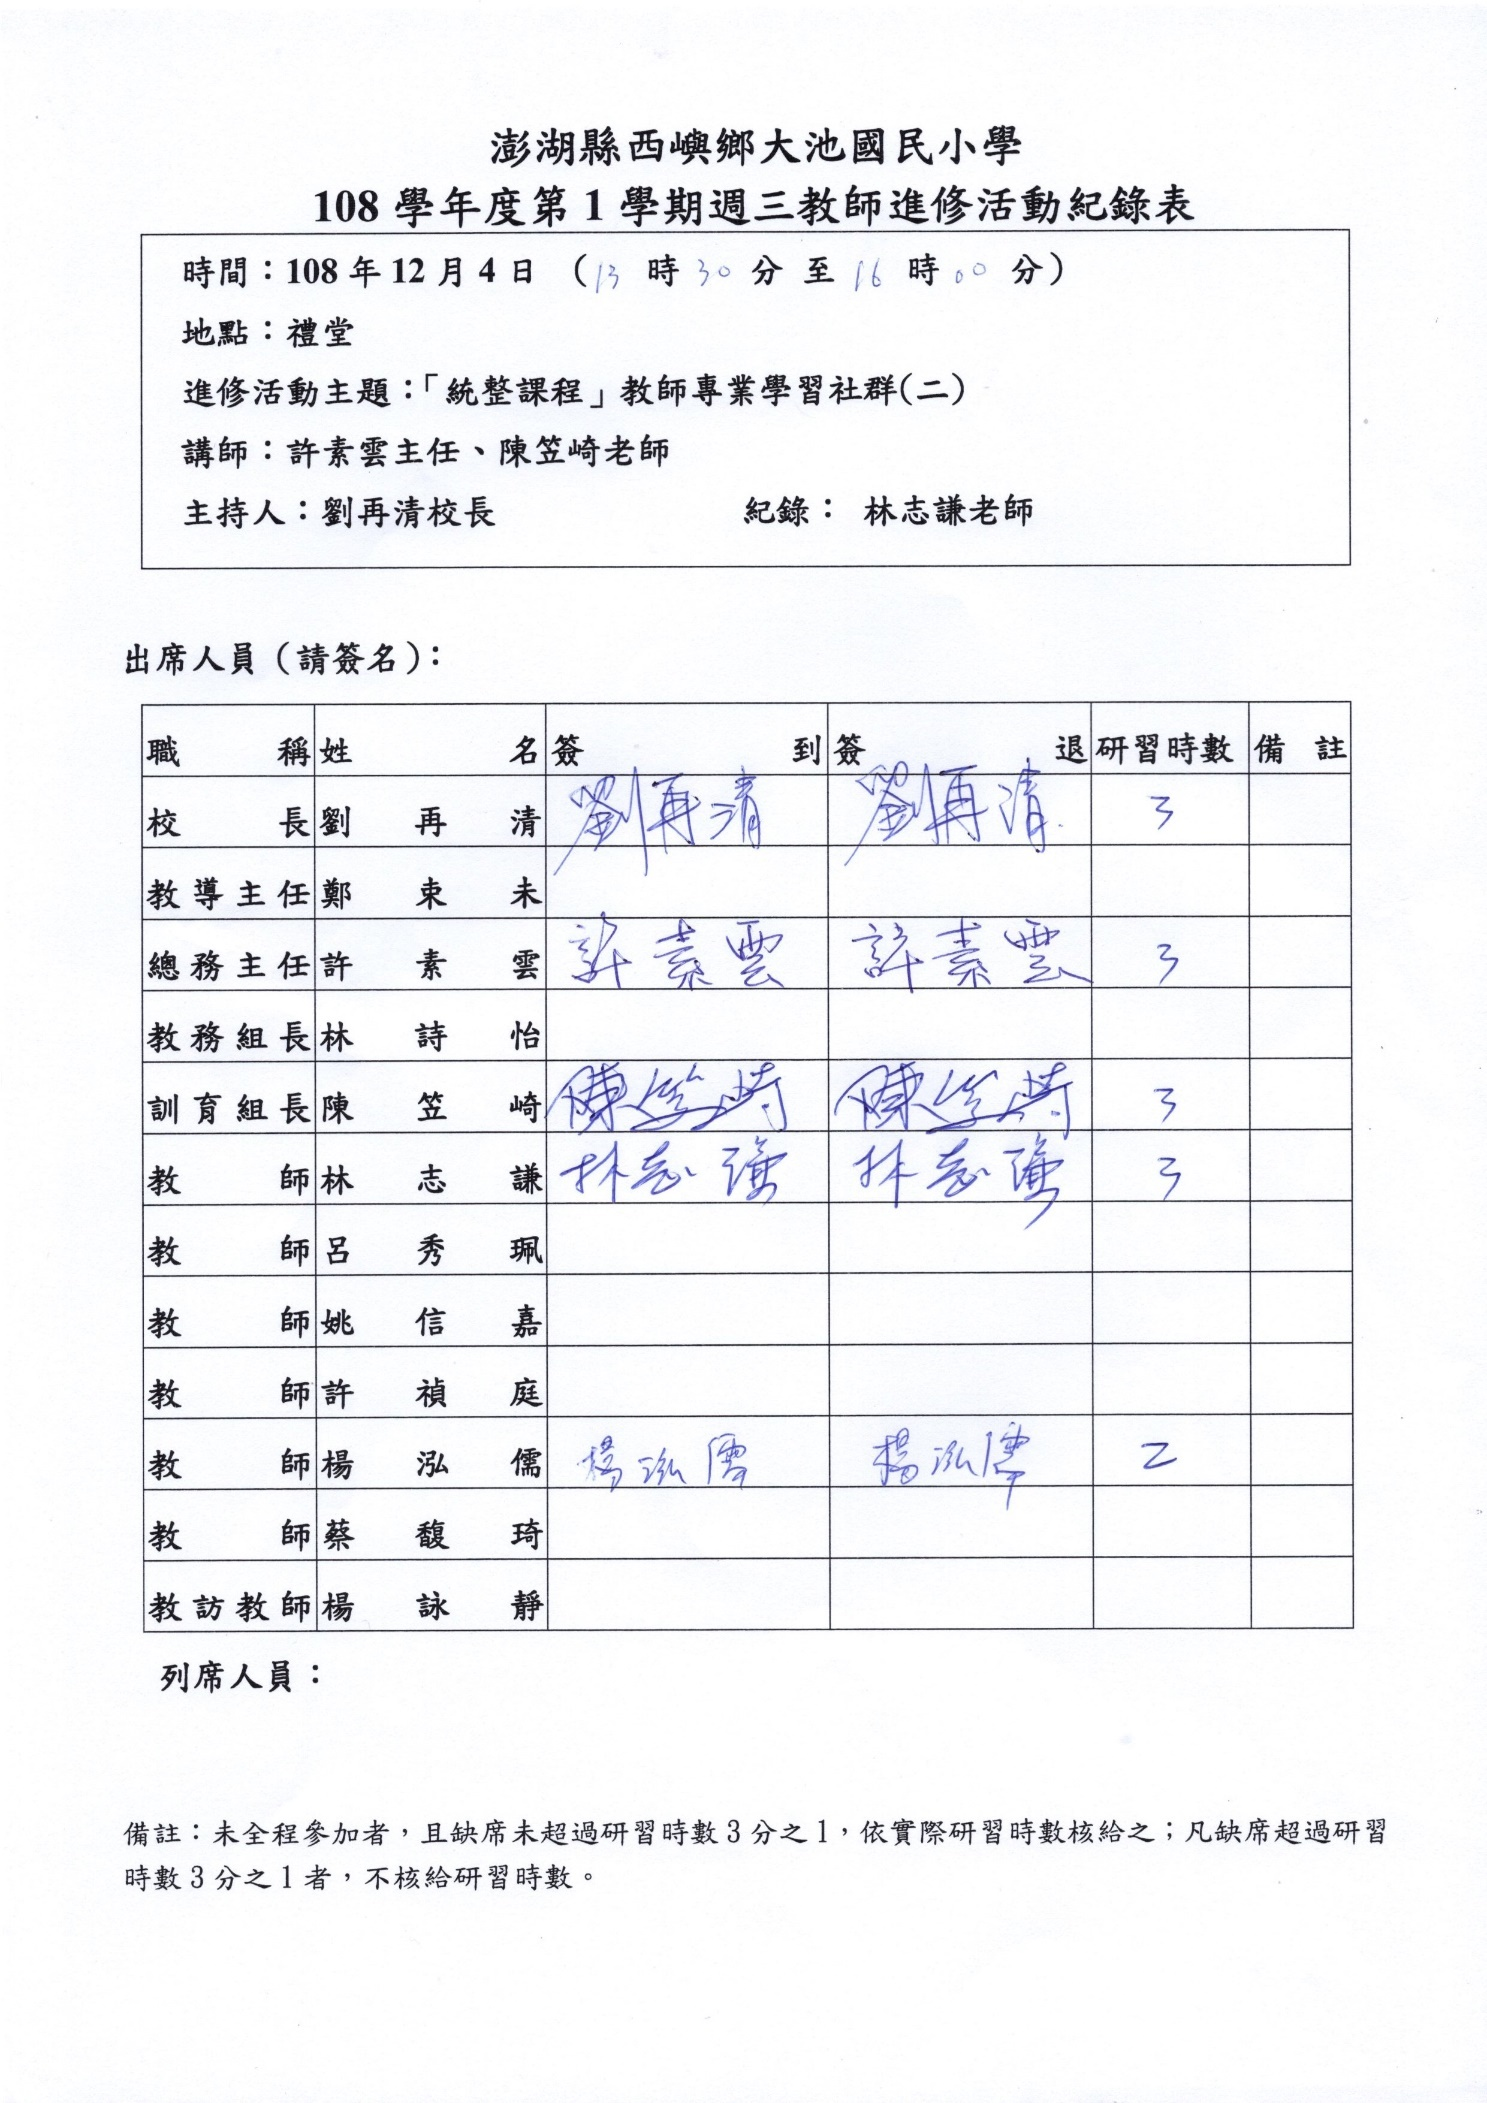 澎湖縣西嶼鄉大池國民小學
108 學年度第 1 學期週三教師進修活動紀錄表
時間：108 年 12 月 4 日 （13 時 30 分 至 16 時 00 分）
地點：禮堂
進修活動主題：「統整課程」教師專業學習社群(二)
講師：許素雲主任、陳笠崎老師
主持人：劉再清校長 紀錄： 林志謙老師
出席人員（請簽名）：
職稱 姓名 簽到 簽退 研習時數 備註
校長 劉再清 劉再清 劉再清 3
教導主任 鄭束未
總務主任 許素雲 許素雲 許素雲 3
教務組長 林詩怡
訓育組長 陳笠崎 陳笠崎 陳笠崎 3
教師 林志謙 林志謙 林志謙 3
教師 呂秀珮
教師 姚信嘉
教師 許禎庭
教師 楊泓儒 楊泓儒 楊泓儒 2
教師 蔡馥琦
教訪教師 楊詠靜
列席人員：
備註：未全程參加者，且缺席未超過研習時數 3 分之 1，依實際研習時數核給之；凡缺席超過研習
時數 3 分之 1 者，不核給研習時數。